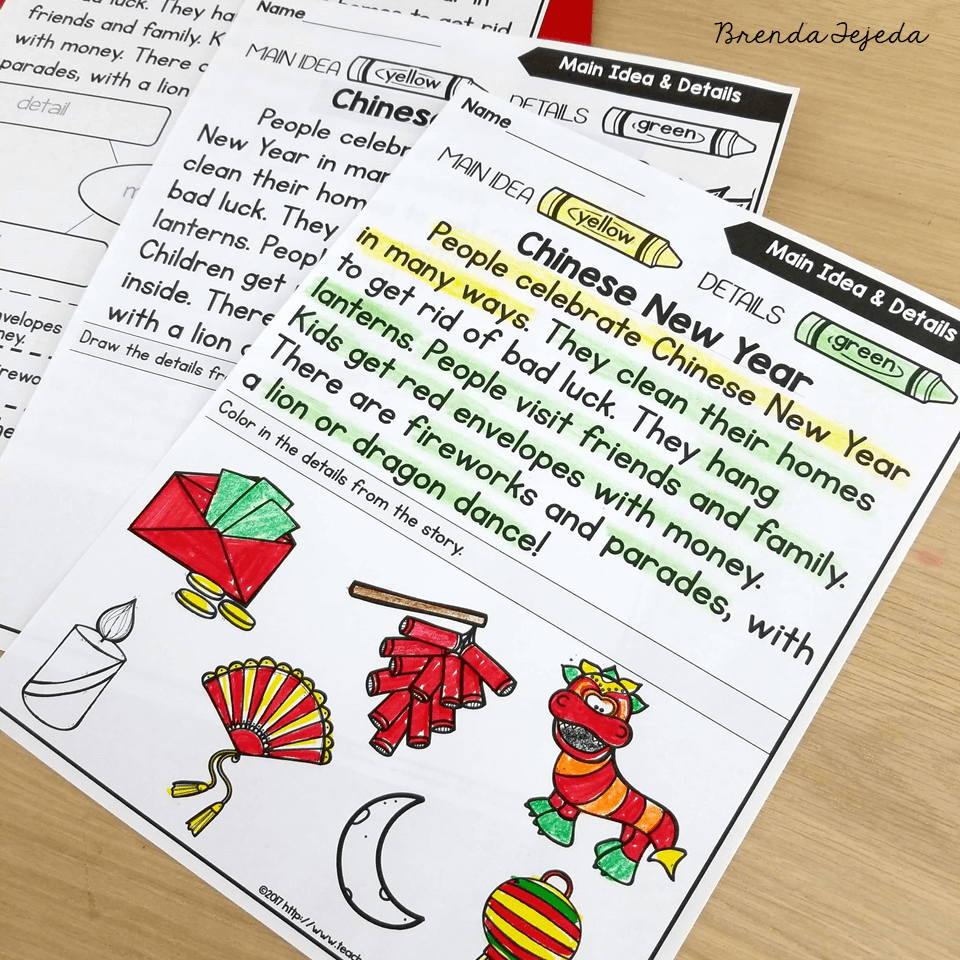 Brenda Tejeda
luck. They ha
friends and family. K
with money. There
parades, with a lion
detail
Name
MAIN IDEA yellow
Main Idea & Details
DETAILS green
Chines
People celebr
New Year in man
clean their hom
bad luck. They
lanterns. Peopl
Children get
inside. There
with a lion
Draw the details fr
Name
MAIN IDEA yellow
Main Idea & Details
DETAILS green
Chinese New Year
People celebrate Chinese New Year
in many ways. They clean their homes
to get rid of bad luck. They hang
lanterns. People visit friends and family.
Kids get red envelopes with money.
There are fireworks and parades, with
a lion or dragon dance!
Color in the details from the story.
©2017 http://www.teach